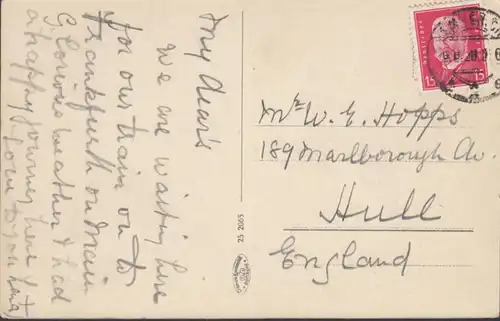 My Dear's
We are waiting here
for our train on to
Frankfurt on Main
Glorious weather & had
a happy journey here
love to you
25 2055
15 15
Mr W. E. Hopps
189 Marlborough Av.
Hull
England